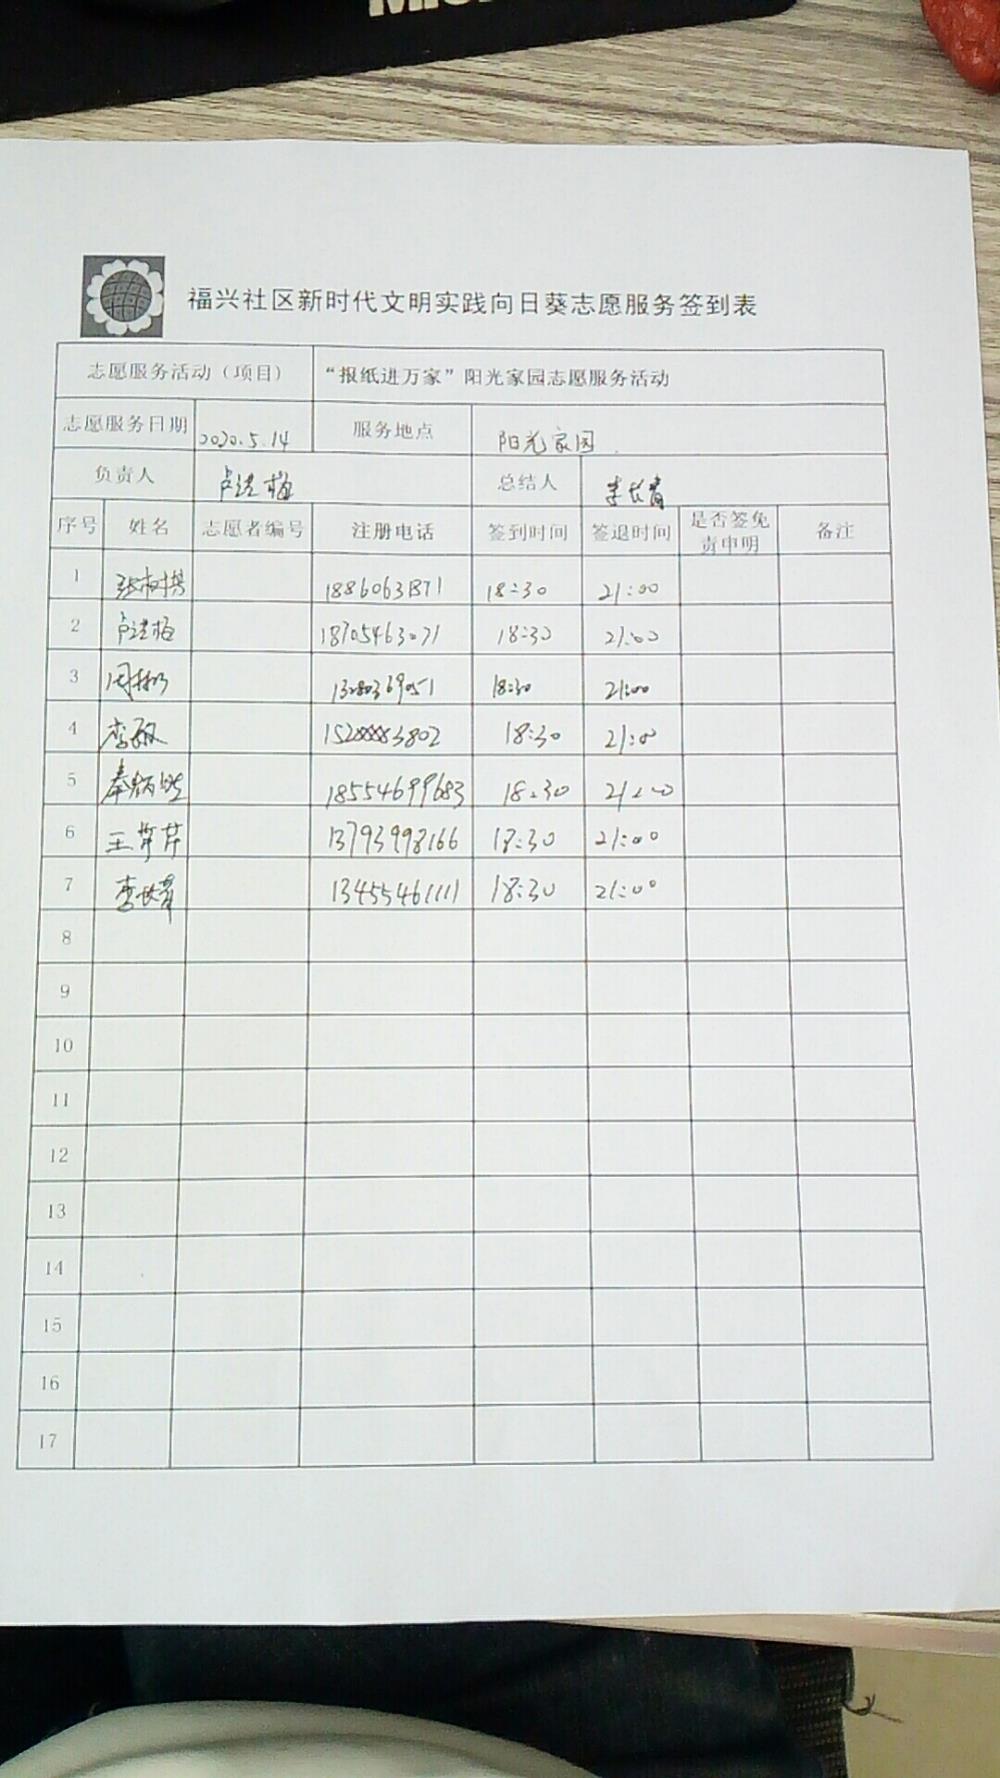 福兴社区新时代文明实践向日葵志愿服务签到表
志愿服务活动（项目） “报纸进万家”阳光家园志愿服务活动
志愿服务日期 2020.5.14 服务地点 阳光家园
负责人 卢洪梅 总结人 李长青
序号 姓名 志愿者编号 注册电话 签到时间 签退时间 是否签免责申明 备注
1 18:30 21:00
2 卢洪梅 18705463071 18:30 21:00
3 13280369051 18:30 21:00
4 李敏 15288883802 18:30 21:00
5 18554699683 18:30 21:00
6 13793998166 18:30 21:00
7 李长青 13455461111 18:30 21:00
8
9
10
11
12
13
14
15
16
17